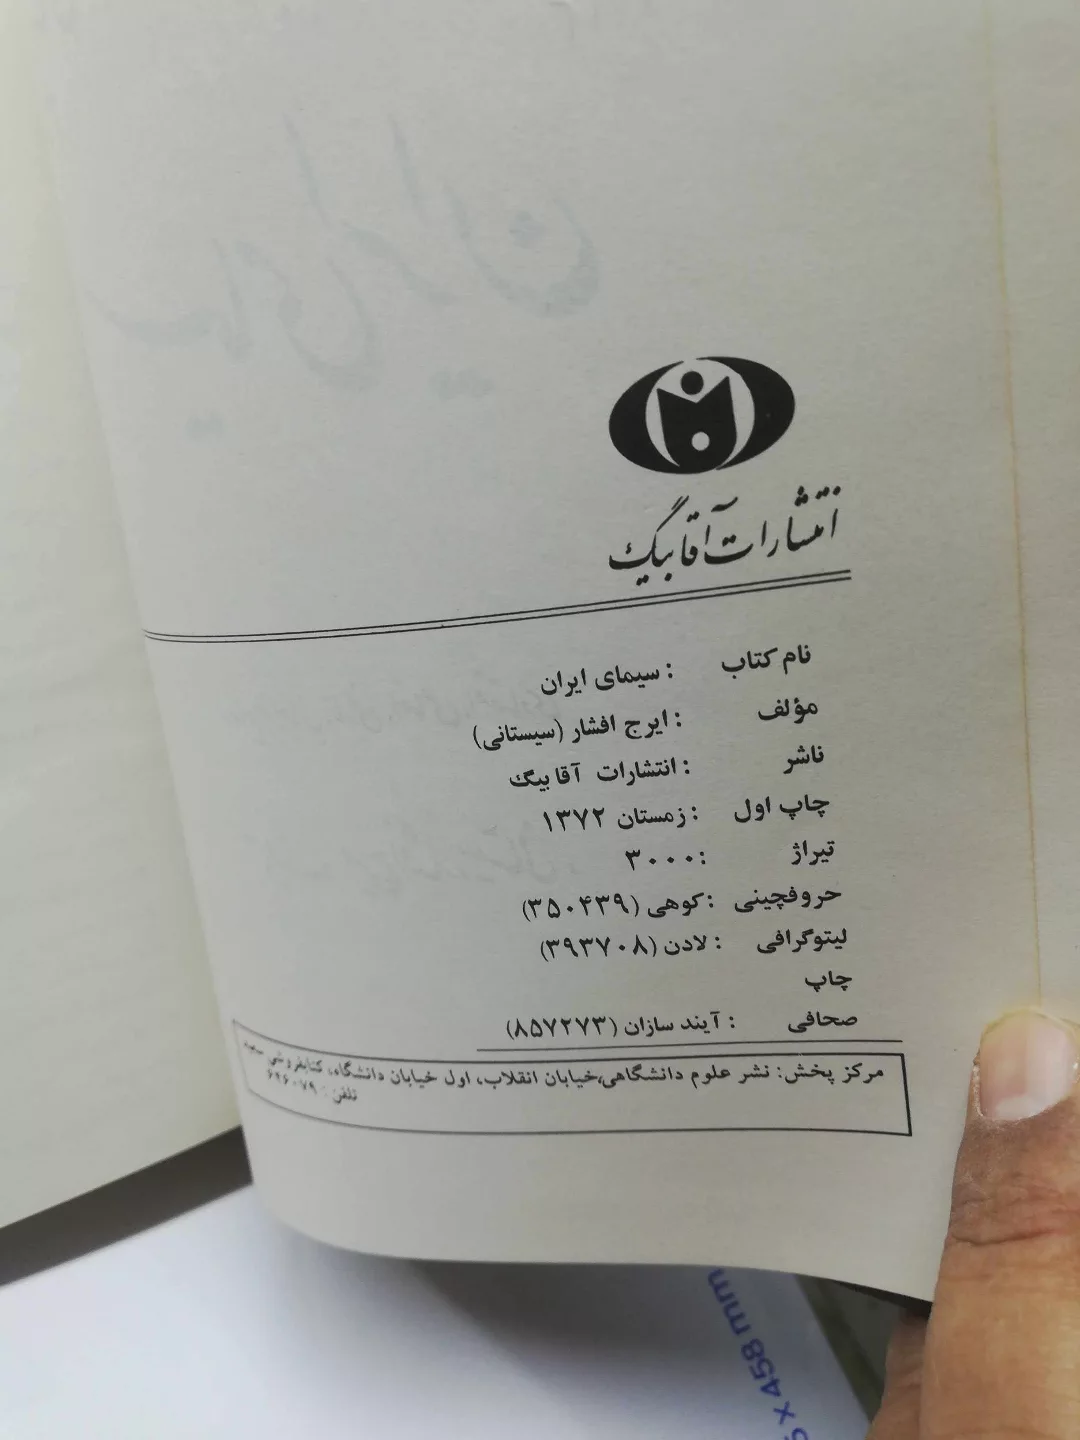 انتشارات آقابیگ
نام کتاب : سیمای ایران
مؤلف : ایرج افشار (سیستانی)
ناشر : انتشارات آقابیگ
چاپ اول : زمستان ۱۳۷۲
تیراژ : ۳۰۰۰
حروفچینی : کوهی (۳۵۰۴۳۹)
لیتوگرافی : لادن (۳۹۳۷۰۸)
چاپ
صحافی : آیند سازان (۸۵۷۲۷۳)
مرکز پخش: نشر علوم دانشگاهی،خیابان انقلاب، اول خیابان دانشگاه، کتابفروشی سعید
تلفن :
سیمای ایران
x 458 mm